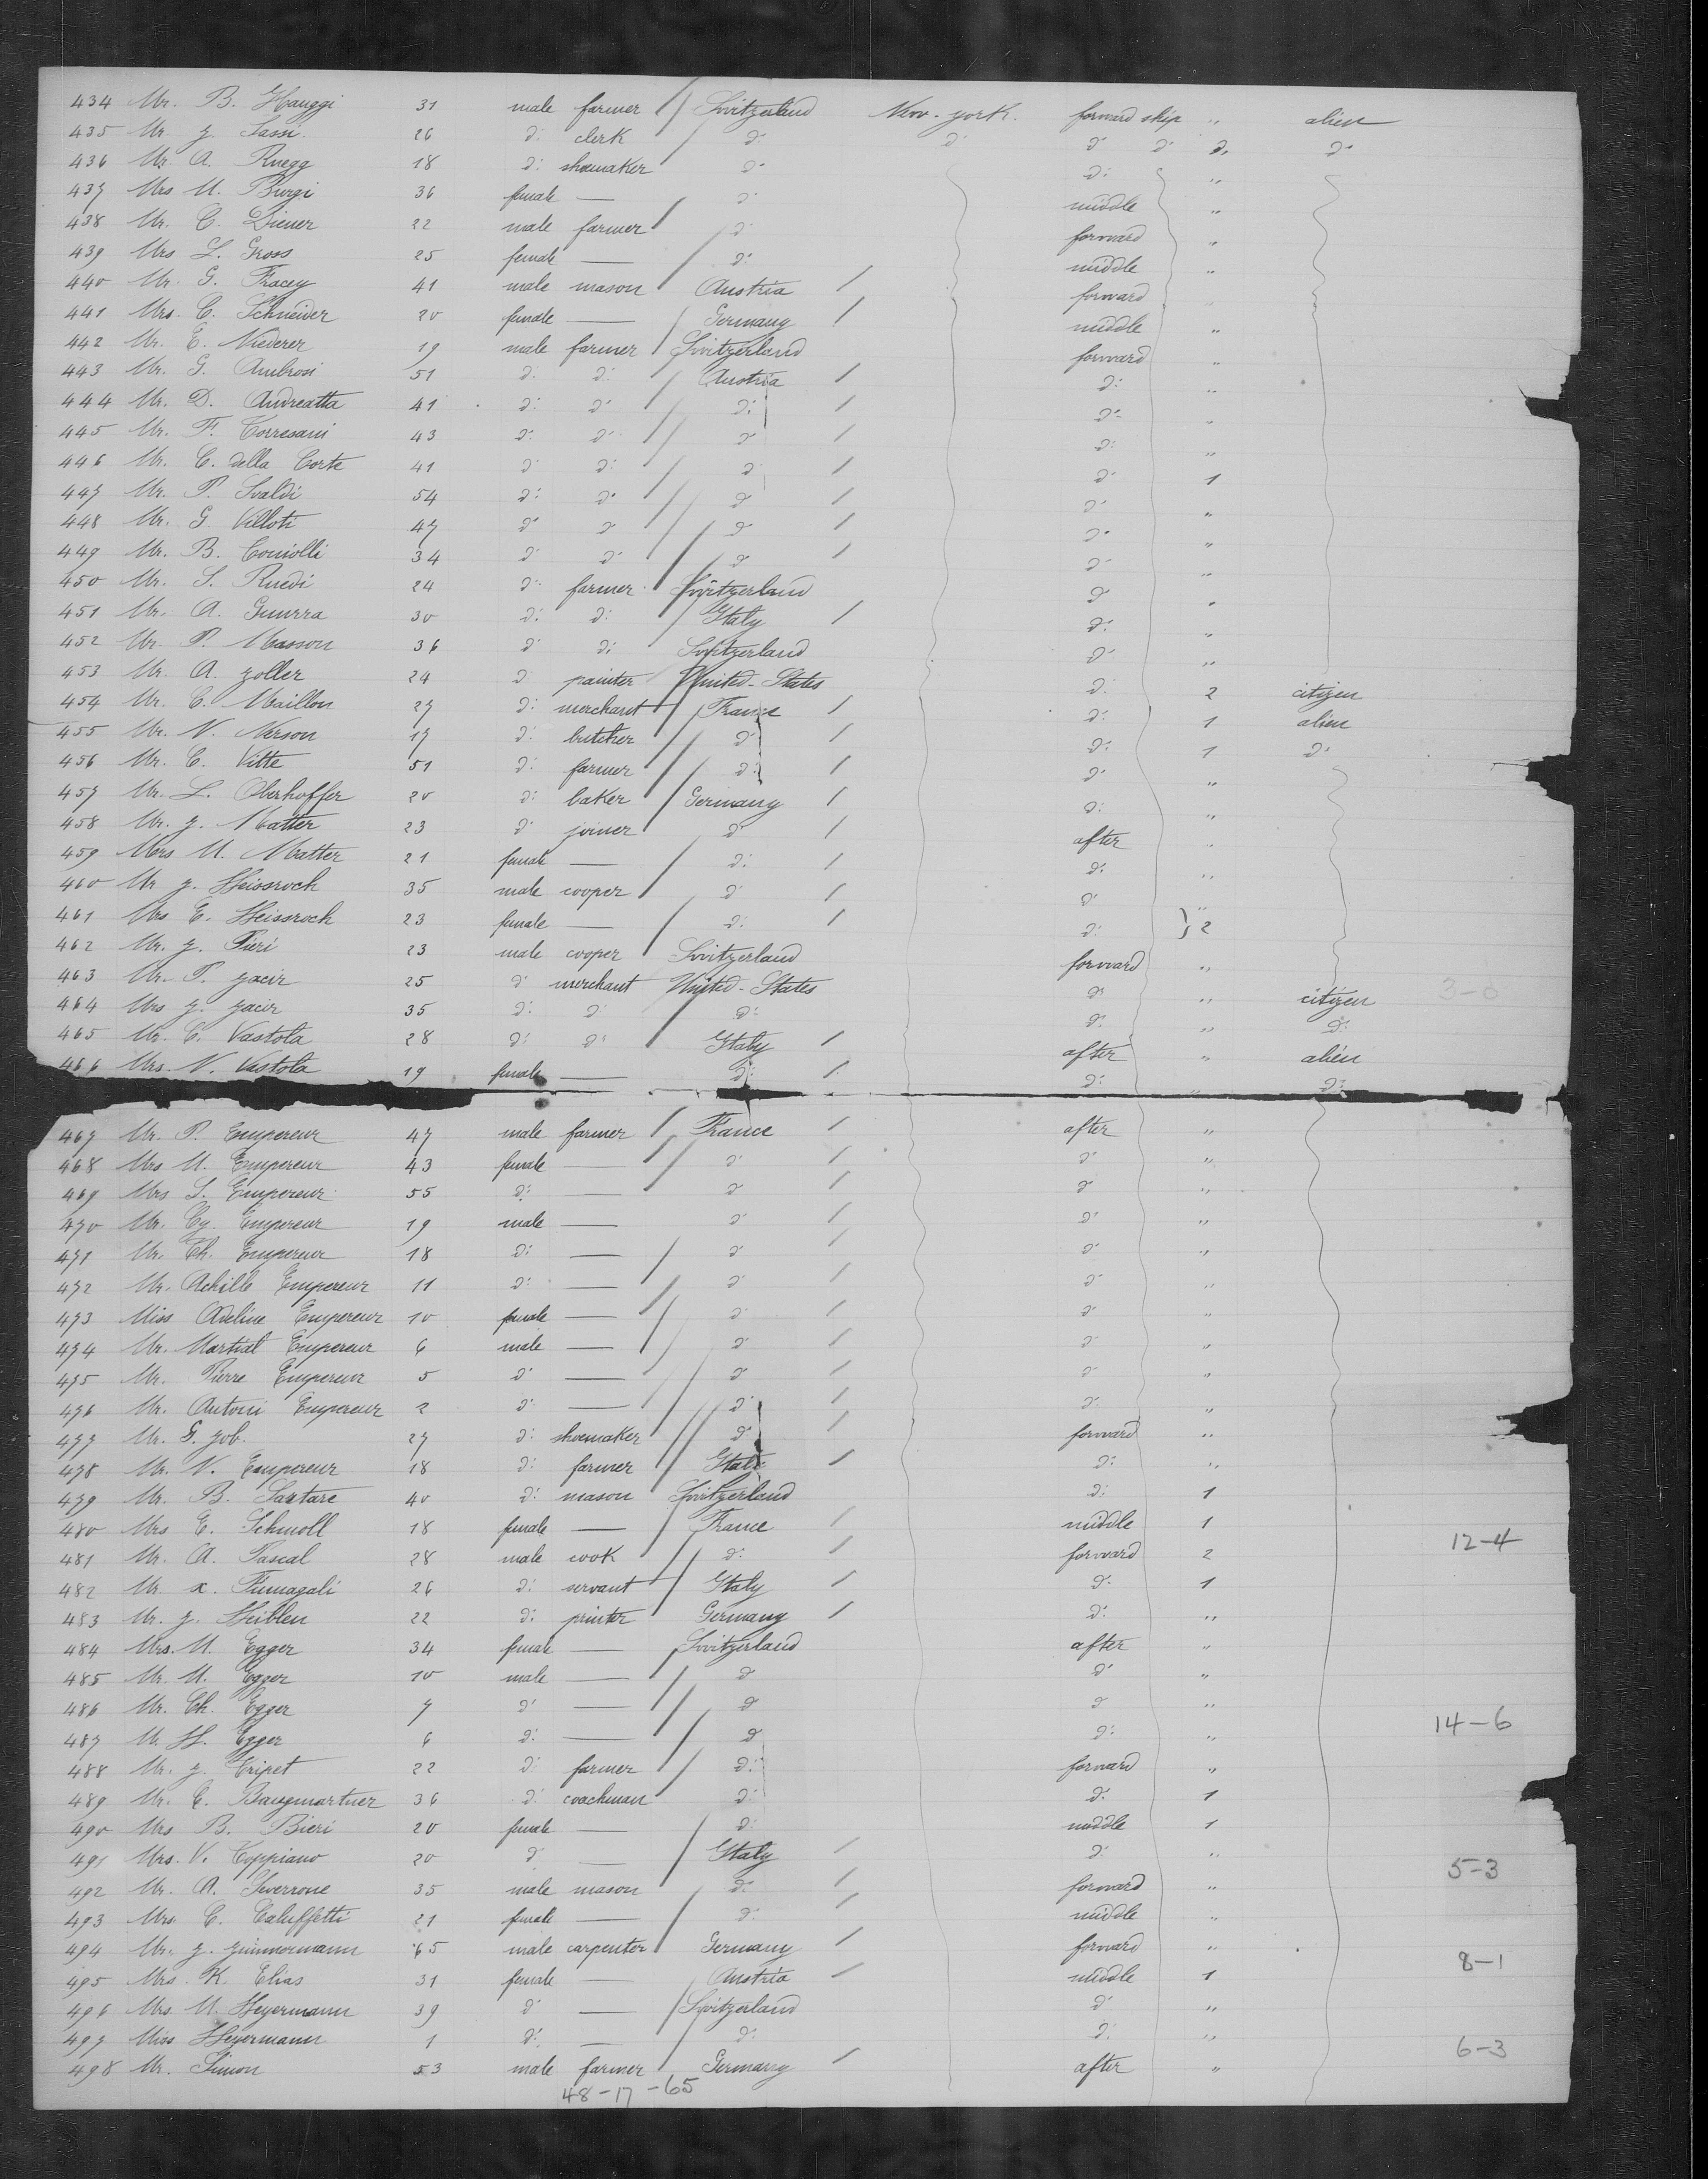 434 Mr. B. Hauggi 31 male farmer Switzerland New-york. forward ship " alien
435 Mr J. Sassi. 26 d: clerk d: d: d: d: d: d:
436 Mr. A. Ruegg 18 d: shoemaker d: d: "
437 Mrs M. Burgi 36 female — d: middle "
438 Mr. C. Diener 22 male farmer d: forward "
439 Mrs L. Gross 25 female — d: middle "
440 Mr. G. Fracey 41 male mason Austria forward "
441 Mrs. C. Schneider 20 female — Germany middle "
442 Mr. E. Niederer 19 male farmer Switzerland forward "
443 Mr. G. Ambrosi 51 d: d: Austria d: "
444 Mr. D. Andreatta 41 d: d: d: d: "
445 Mr. F. Corresani 43 d: d: d: d: "
446 Mr. C. della Corte 41 d: d: d: d: 1
447 Mr. P. Svaldi 54 d: d: d: d: "
448 Mr. G. Villoti 47 d: d: d: d: "
449 Mr. B. Comolli 34 d: d: d: d: "
450 Mr. S. Ruedi 24 d: farmer Switzerland d: "
451 Mr. A. Guerra 30 d: d: Italy d: "
452 Mr. P. Masson 36 d: d: Switzerland d: "
453 Mr. A. Zoller 24 d: painter United-States d: 2 citizen
454 Mr. C. Maillon 27 d: merchant France d: 1 alien
455 Mr. N. Nerson 17 d: butcher d: d: 1 d:
456 Mr. C. Vitte 51 d: farmer d: d: "
457 Mr. L. Oberhoffer 20 d: baker Germany d: "
458 Mr. J. Matter 23 d: joiner d: after "
459 Mrs M. Matter 21 female — d: d: "
460 Mr J. Heissroch 35 male cooper d: d: "
461 Mrs E. Heissroch 23 female — d: d: } 2
462 Mr. J. Pieri 23 male cooper Switzerland forward "
463 Mr. P. Jacir 25 d: merchant United-States d: " citizen 3-0
464 Mrs J. Jacir 35 d: d: d: d: " d:
465 Mr. C. Vastola 28 d: d: Italy after " alien
466 Mrs. N. Vastola 19 female — d: d: " d:
467 Mr. P. Empereur 47 male farmer France after "
468 Mrs M. Empereur 43 female — d: d: "
469 Mrs S. Empereur 55 d: — d: d: "
470 Mr. Cy. Empereur 19 male — d: d: "
471 Mr. Th. Empereur 18 d: — d: d: "
472 Mr. Achille Empereur 11 d: — d: d: "
473 Miss Adeline Empereur 10 female — d: d: "
474 Mr. Martial Empereur 6 male — d: d: "
475 Mr. Pierre Empereur 5 d: — d: d: "
476 Mr. Antoni Empereur 2 d: — d: d: "
477 Mr. G. Job. 27 d: shoemaker d: forward "
478 Mr. N. Empereur 18 d: farmer Italy d: "
479 Mr. B. Sartare 40 d: mason Switzerland d: 1
480 Mrs E. Schmoll 18 female — France middle 1
481 Mr. A. Pascal 28 male cook d: forward 2 12-4
482 Mr. x. Fumagali 26 d: servant Italy d: 1
483 Mr. J. Heiblen 22 d: printer Germany d: "
484 Mrs. M. Egger 34 female — Switzerland after "
485 Mr. M. Egger 10 male — d: d: "
486 Mr. Ch. Egger 7 d: — d: d: "
487 Mr H. Egger 6 d: — d: d: " 14-6
488 Mr. J. Cripet 22 d: farmer d: forward "
489 Mr. E. Baugmartner 36 d: coachman d: d: 1
490 Mrs B. Bieri 20 female — d: middle 1
491 Mrs. V. Coppiano 20 d: — Italy d: "
492 Mr. A. Siverrone 35 male mason d: forward " 5-3
493 Mrs. C. Caluffetti 21 female — d: middle "
494 Mr. J. Zimmermann 65 male carpenter Germany forward "
495 Mrs. K. Elias 31 female — Austria middle 1 8-1
496 Mrs. M. Heyermann 39 d: — Switzerland d: "
497 Miss Heyermann 1 d: — d: d: "
498 Mr. Simon 53 male farmer Germany after " 6-3
48-17-65